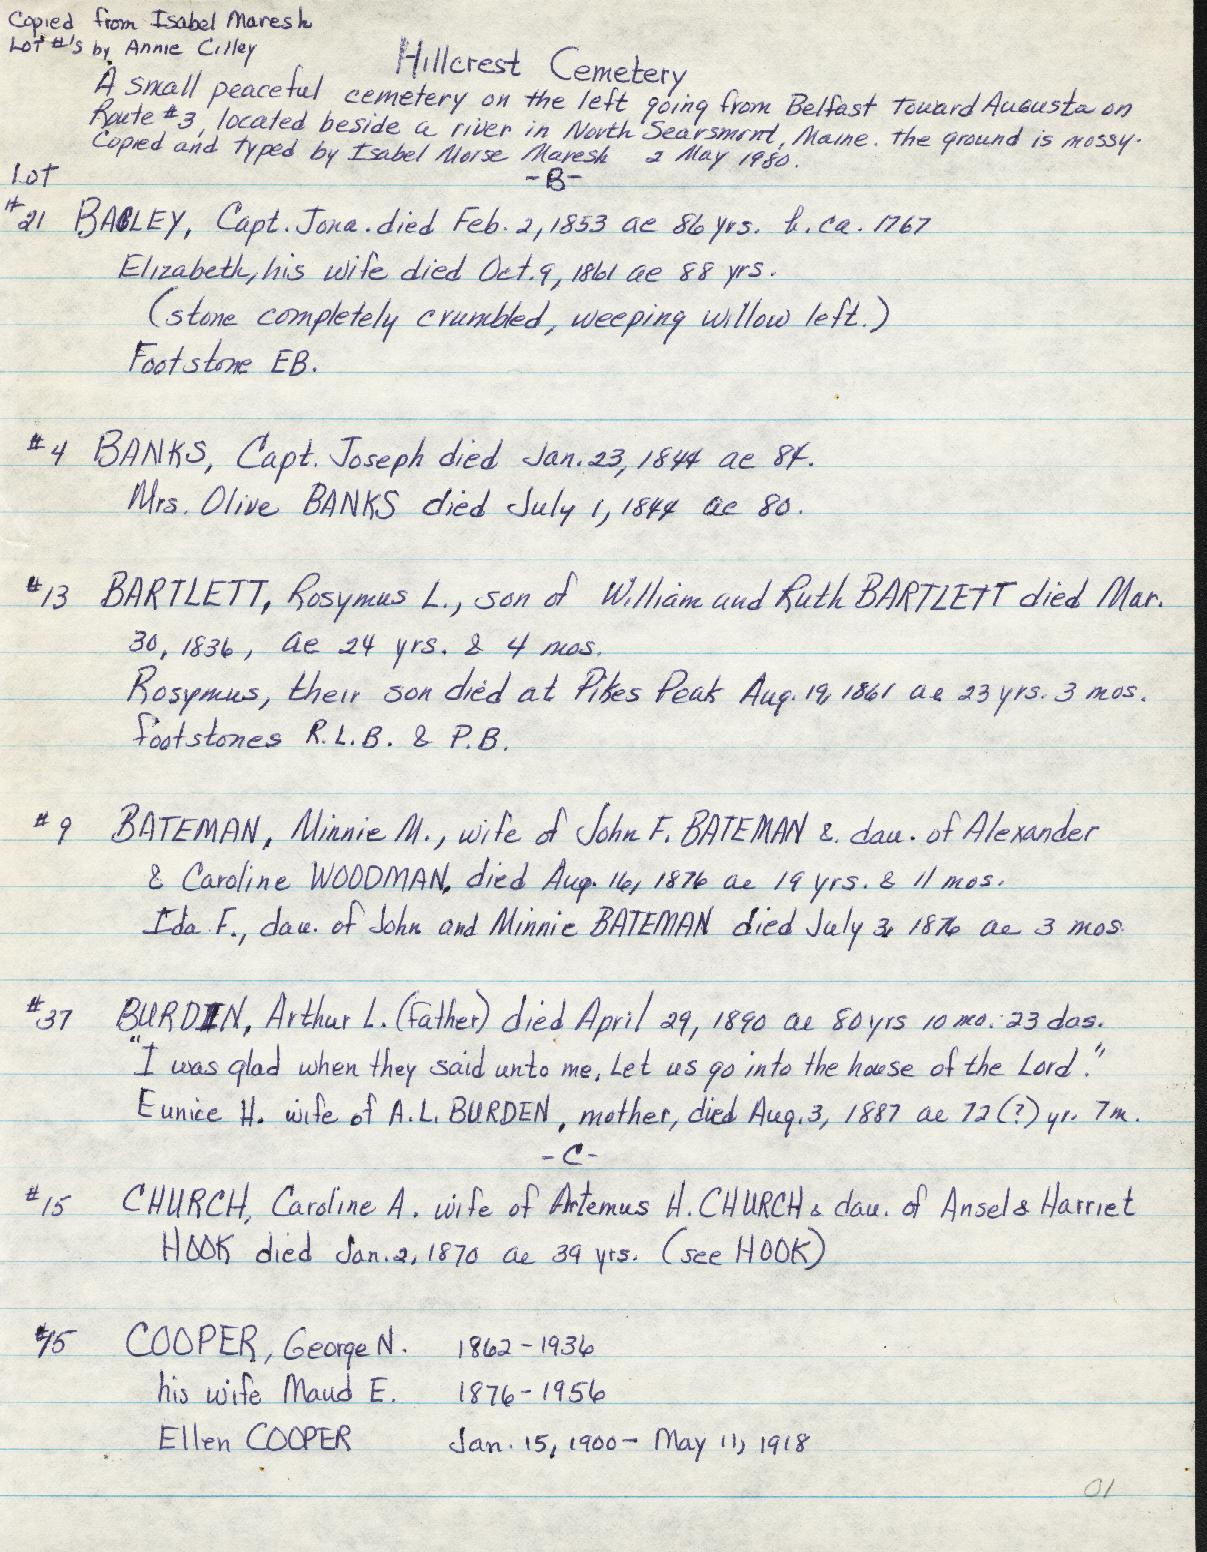 Copied from Isabel Maresh
Lot #'s by Annie Cilley
Hillcrest Cemetery
A small peaceful cemetery on the left going from Belfast toward Augusta on
Route #3, located beside a river in North Searsmont, Maine. the ground is mossy.
Copied and typed by Isabel Morse Maresh 2 May 1980.
Lot
-B-
#21 BAGLEY, Capt. Jona. died Feb. 2, 1853 ae 86 yrs. b. ca. 1767
Elizabeth, his wife died Oct. 9, 1861 ae 88 yrs.
(stone completely crumbled, weeping willow left.)
Footstone EB.
#4 BANKS, Capt. Joseph died Jan. 23, 1844 ae 84.
Mrs. Olive BANKS died July 1, 1844 ae 80.
#13 BARTLETT, Rosymus L., son of William and Ruth BARTLETT died Mar.
30, 1836, ae 24 yrs. & 4 mos.
Rosymus, their son died at Pikes Peak Aug. 19, 1861 ae 23 yrs. 3 mos.
footstones R.L.B. & P.B.
#9 BATEMAN, Minnie M., wife of John F. BATEMAN & dau. of Alexander
& Caroline WOODMAN, died Aug. 16, 1876 ae 19 yrs. & 11 mos.
Ida F., dau. of John and Minnie BATEMAN died July 3, 1876 ae 3 mos.
#37 BURDIN, Arthur L. (father) died April 29, 1890 ae 80 yrs 10 mo. 23 das.
"I was glad when they said unto me, Let us go into the house of the Lord."
Eunice H. wife of A.L. BURDEN, mother, died Aug. 3, 1887 ae 72 (?) yr. 7m.
-C-
#15 CHURCH, Caroline A. wife of Artemus H. CHURCH & dau. of Ansel & Harriet
HOOK died Jan. 2, 1870 ae 39 yrs. (see HOOK)
#15 COOPER, George N. 1862-1936
his wife Maud E. 1876-1956
Ellen COOPER Jan. 15, 1900- May 11, 1918
01